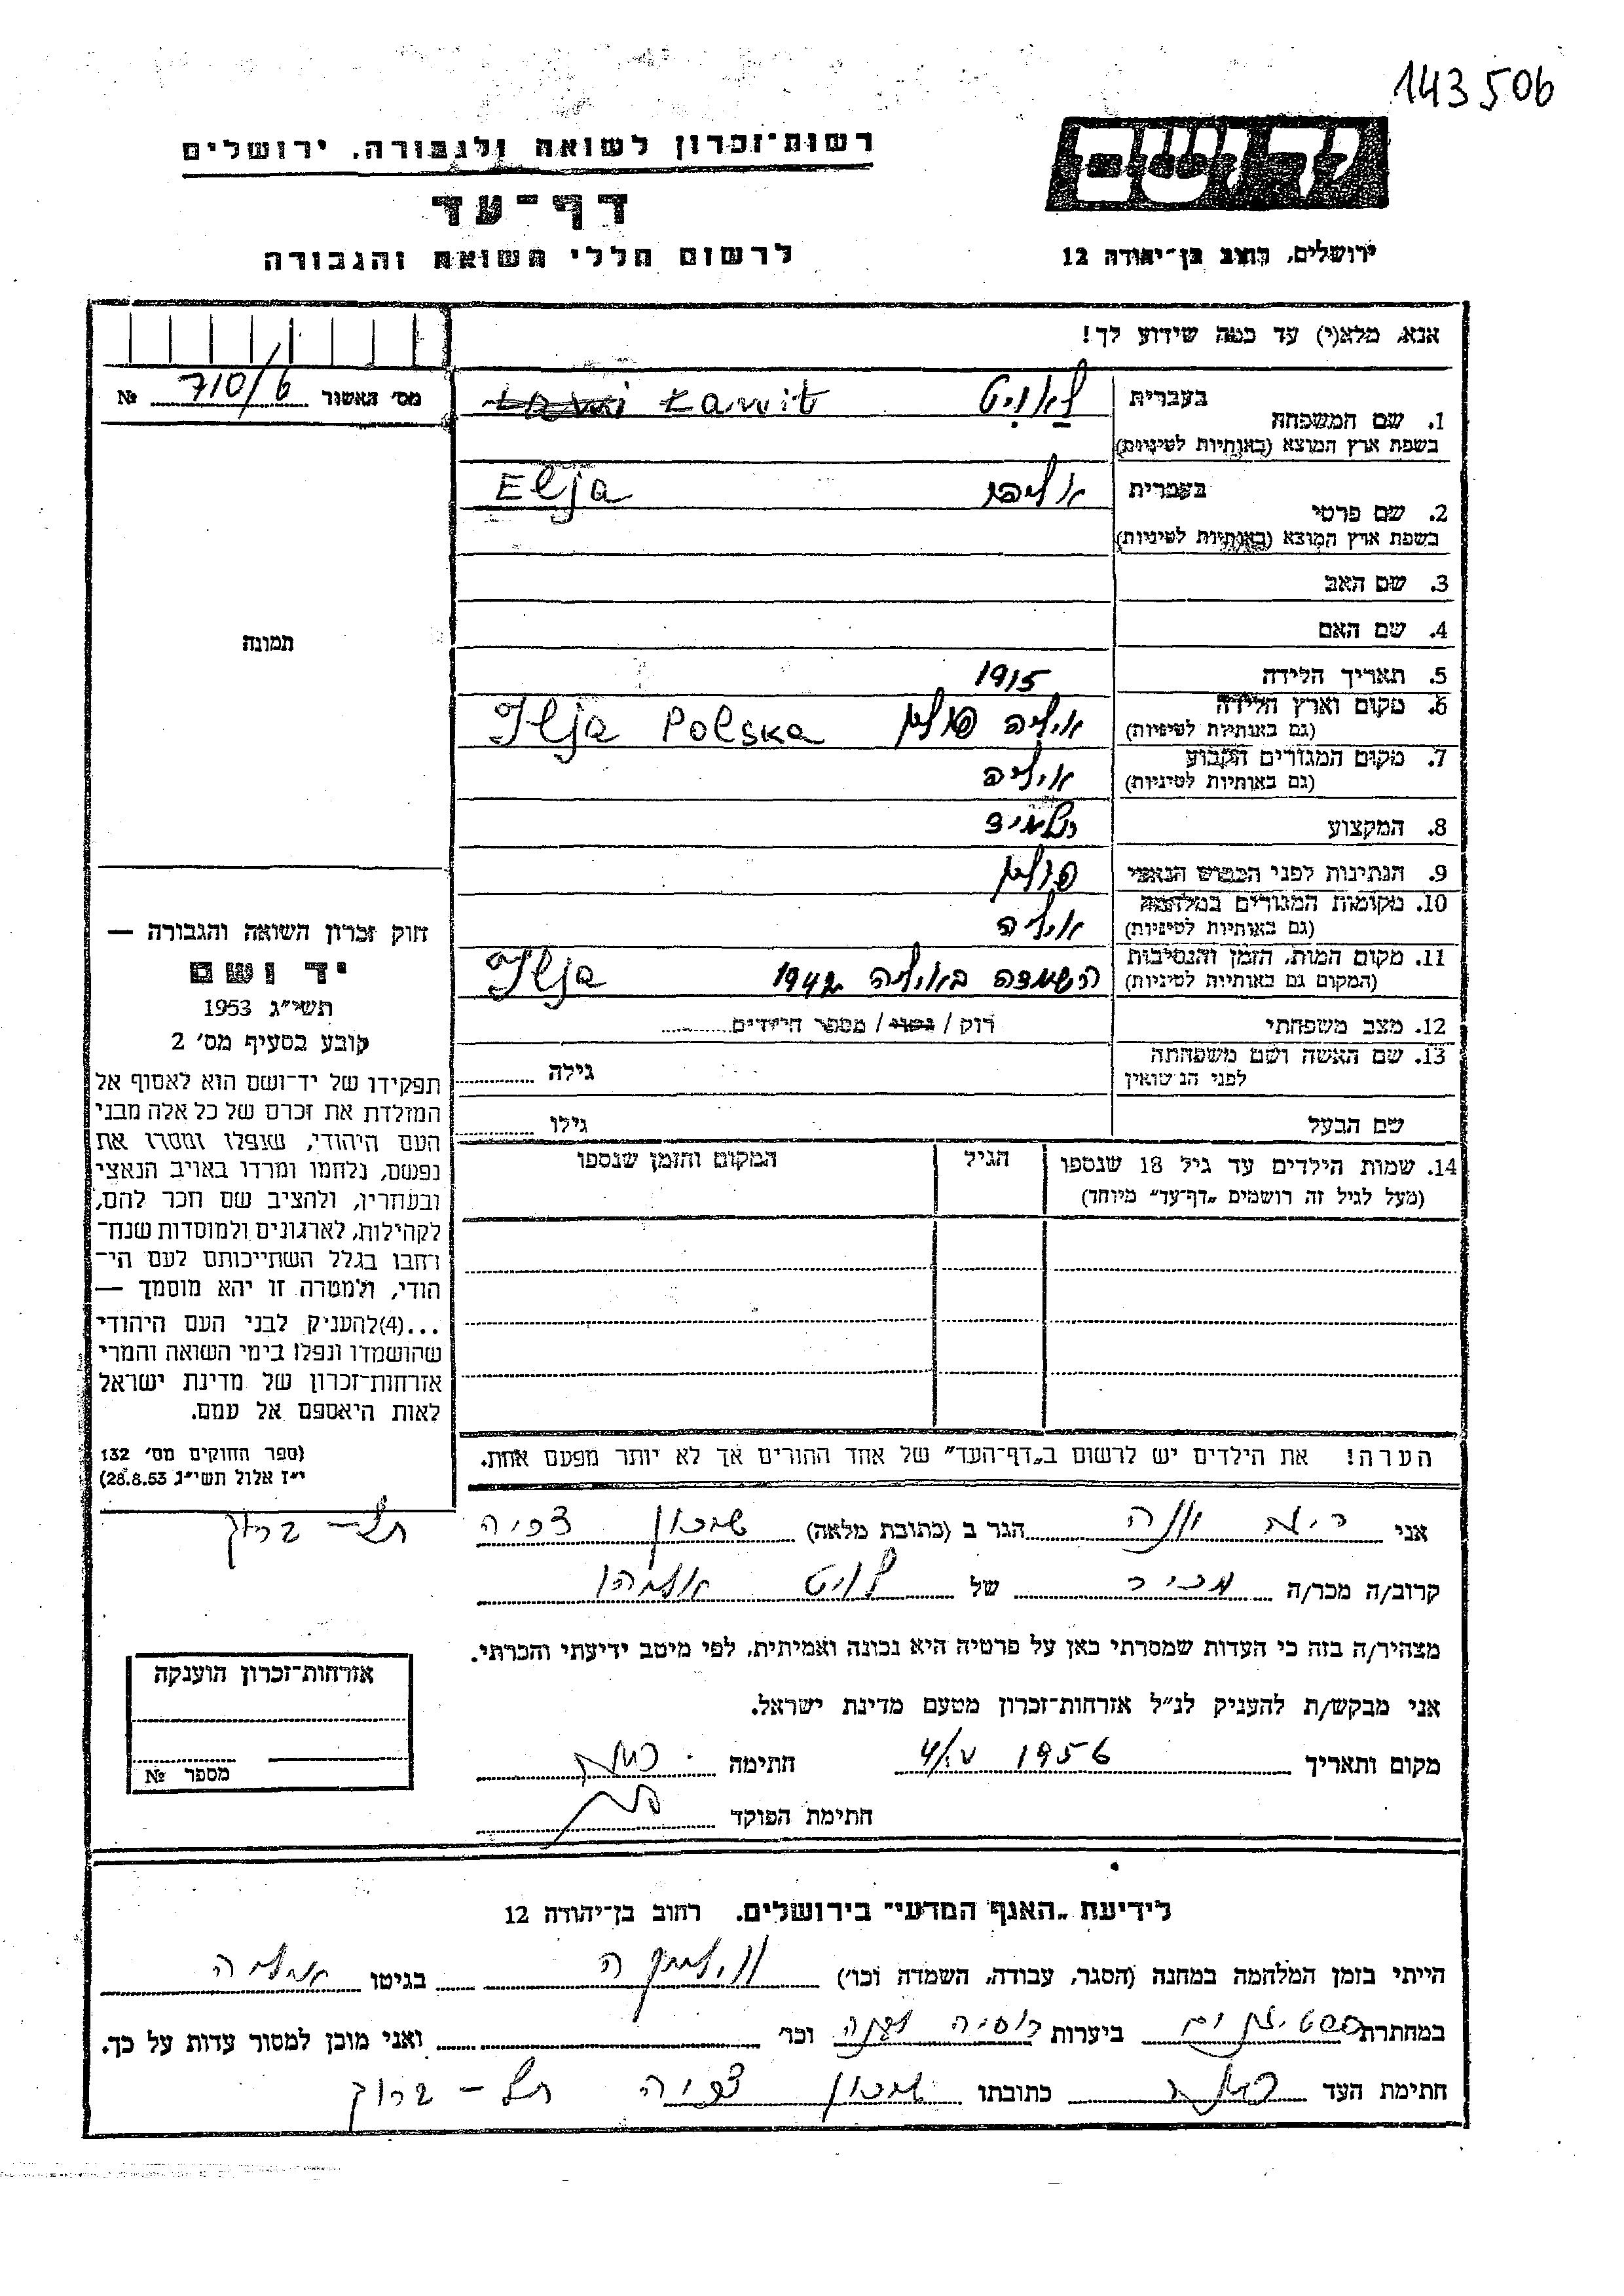 143506
רשות־זכרון לשואה ולגבורה, ירושלים
יד ושם
דף־עד
לרשום חללי השואה והגבורה
ירושלים, רחוב בן־יהודה 12
אנא, מלא(י) עד כמה שידוע לך!
מס׳ האשור 710/6 №
1. שם המשפחה
בעברית לאויט Ławit
בשפת ארץ המוצא (באותיות לטיניות)
2. שם פרטי
בעברית Elja
בשפת ארץ המוצא (באותיות לטיניות)
3. שם האב
4. שם האם
תמונה
5. תאריך הלידה 1915
6. מקום וארץ הלידה אוליה פולין Ilja Polska
(גם באותיות לטיניות)
7. מקום המגורים הקבוע אוליה
(גם באותיות לטיניות)
8. המקצוע תלמיד
9. הנתינות לפני הכבוש הנאצי פולין
10. מקומות המגורים במלחמה אוליה
(גם באותיות לטיניות)
11. מקום המות, הזמן והנסיבות השמדה באוליה 1942 Ilja
(המקום גם באותיות לטיניות)
12. מצב משפחתי רוק / נשוי / מספר הילדים
13. שם האשה ושם משפחתה
לפני הנישואין גילה
שם הבעל גילו
14. שמות הילדים עד גיל 18 שנספו הגיל המקום והזמן שנספו
(מעל לגיל זה רושמים „דף־עד” מיוחד)
הערה! את הילדים יש לרשום ב„דף־העד” של אחד ההורים אך לא יותר מפעם אחת.
חוק זכרון השואה והגבורה —
יד ושם
תשי״ג 1953
קובע בסעיף מס׳ 2
תפקידו של יד־ושם הוא לאסוף אל
המולדת את זכרם של כל אלה מבני
העם היהודי, שנפלו ומסרו את
נפשם, נלחמו ומרדו באויב הנאצי
ובעוזריו, ולהציב שם וזכר להם,
לקהילות, לארגונים ולמוסדות שנח־
רבו בגלל השתייכותם לעם הי־
הודי, ולמטרה זו יהא מוסמך —
...(4) להעניק לבני העם היהודי
שהושמדו ונפלו בימי השואה והמרי
אזרחות־זכרון של מדינת ישראל
לאות היאספם אל עמם.
(ספר החוקים מס׳ 132
י״ז אלול תשי״ג 28.8.53)
אני הגר ב (כתובת מלאה) שכון צפיה תל–ברוך
קרוב/ה מכר/ה מכיר של לויט אליהו
מצהיר/ה בזה כי העדות שמסרתי כאן על פרטיה היא נכונה ואמיתית, לפי מיטב ידיעתי והכרתי.
אני מבקש/ת להעניק לנ״ל אזרחות־זכרון מטעם מדינת ישראל.
מקום ותאריך 1956 חתימה
חתימת הפוקד
אזרחות־זכרון הוענקה
מספר №
לידיעת „האגף המדעי” בירושלים. רחוב בן־יהודה 12
הייתי בזמן המלחמה במחנה (הסגר, עבודה, השמדה וכו׳) בגיטו אוליה
במחתרת ביערות רוסיה וכו׳ ואני מוכן למסור עדות על כך.
חתימת העד כתובתו שכון צפיה תל – ברוך